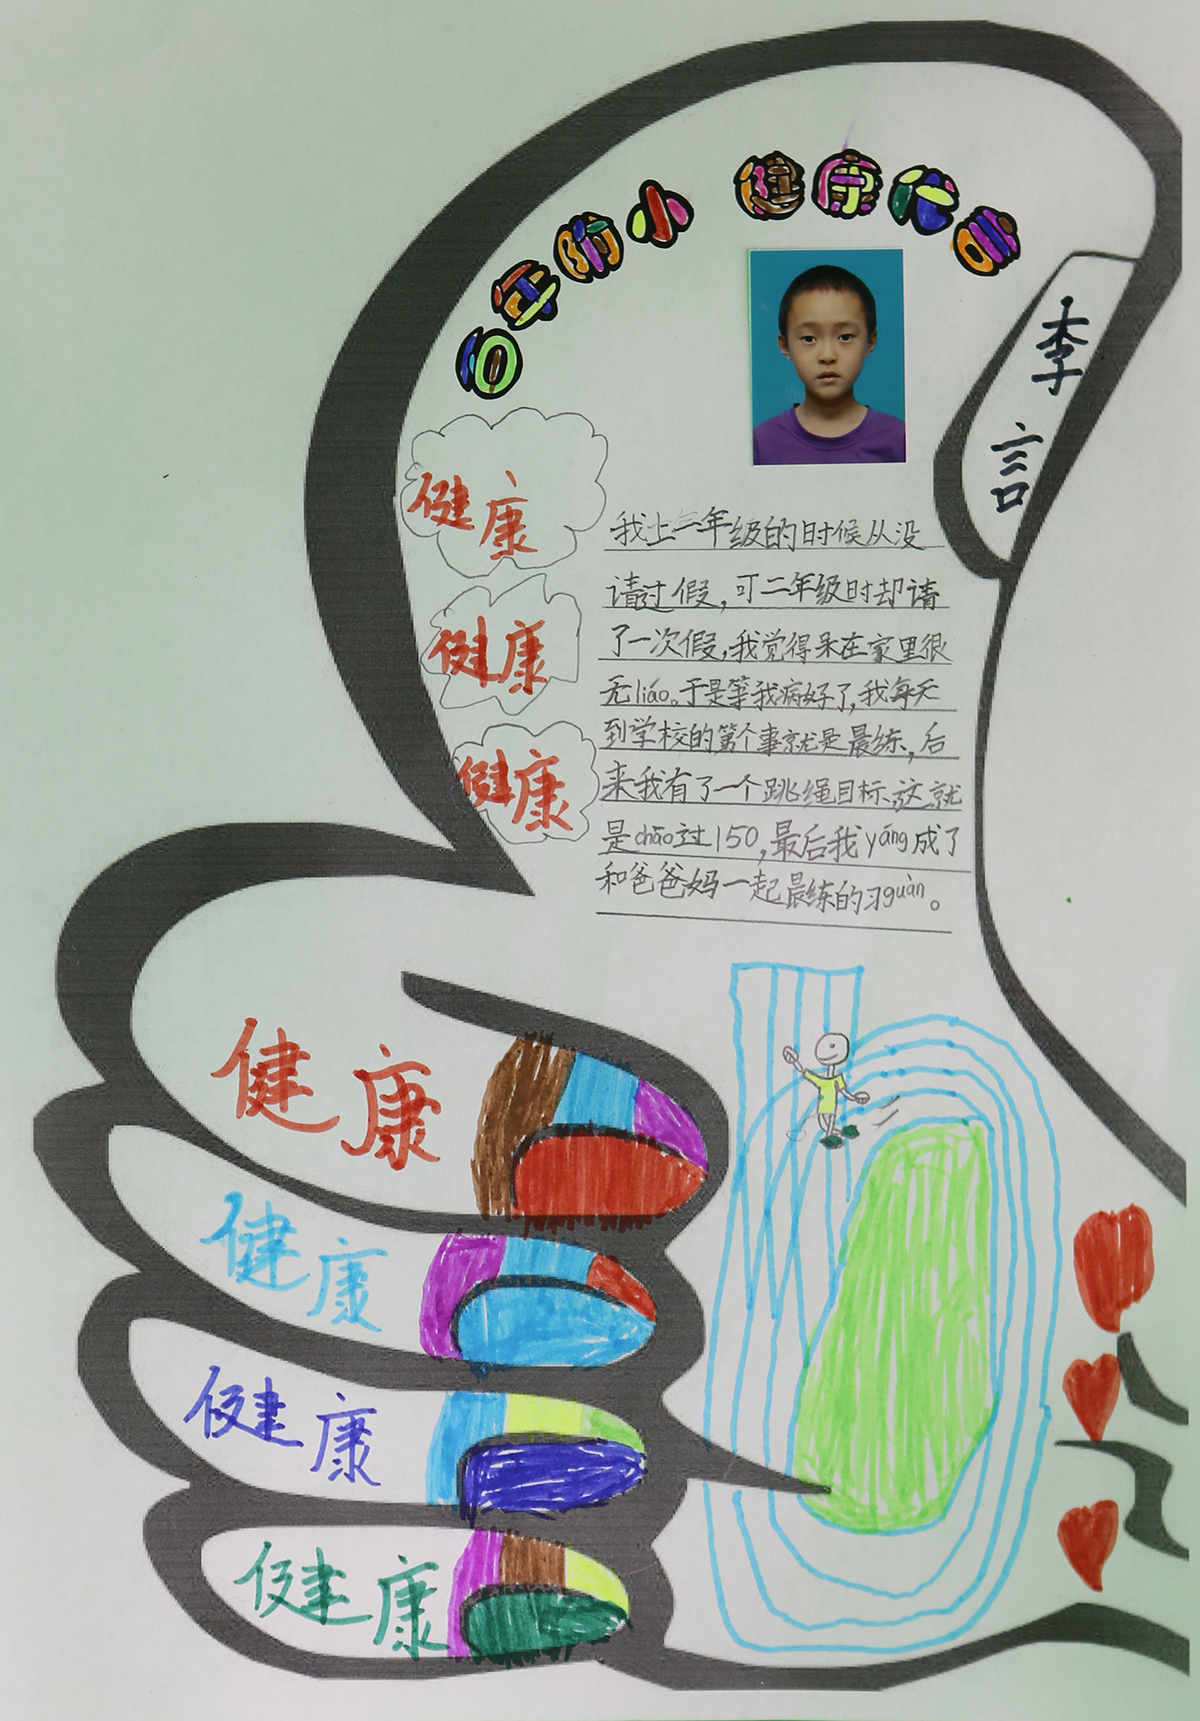 10年附小 健康代言
李言
健康
健康
健康
我上一年级的时候从没
请过假，可二年级时却请
了一次假，我觉得呆在家里很
无liáo。于是等我病好了，我每天
到学校的第个事就是晨练，后
来我有了一个跳绳目标，这就
是chāo过150，最后我yǎng成了
和爸爸妈一起晨练的习guàn。
健康
健康
健康
健康